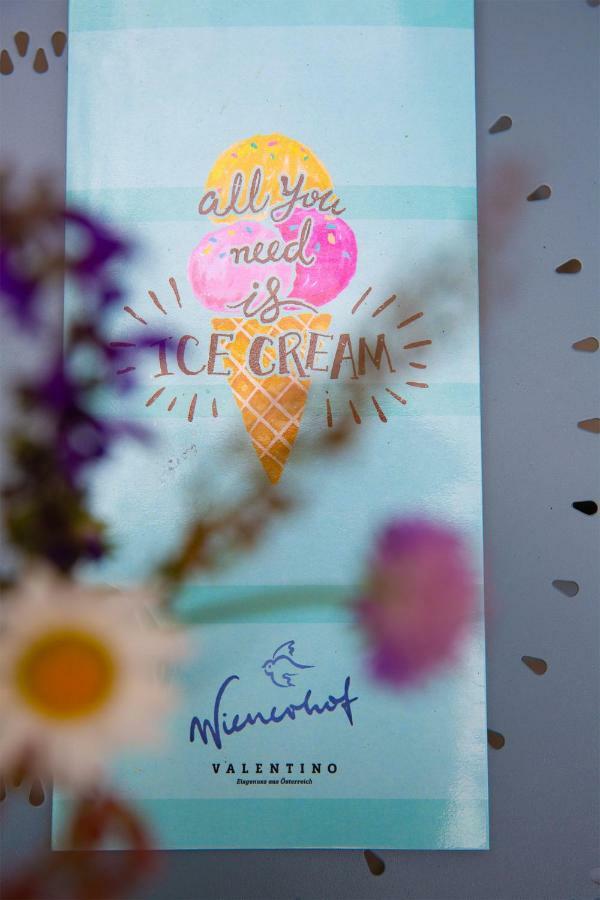 all You
need
is
ICE CREAM
Wienerhof
VALENTINO
Eisgenuss aus Österreich